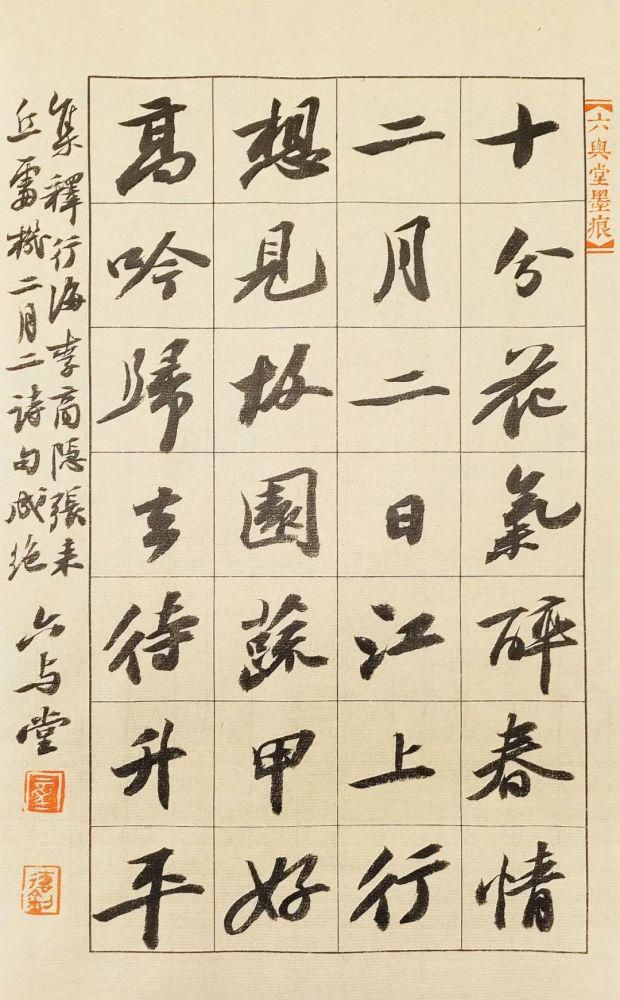 六與堂墨痕
十分花氣醉春情
二月二日江上行
想見故園蔬甲好
高吟歸去待升平
集釋行海李商隱張耒
丘雷機二月二詩句成絕
六与堂